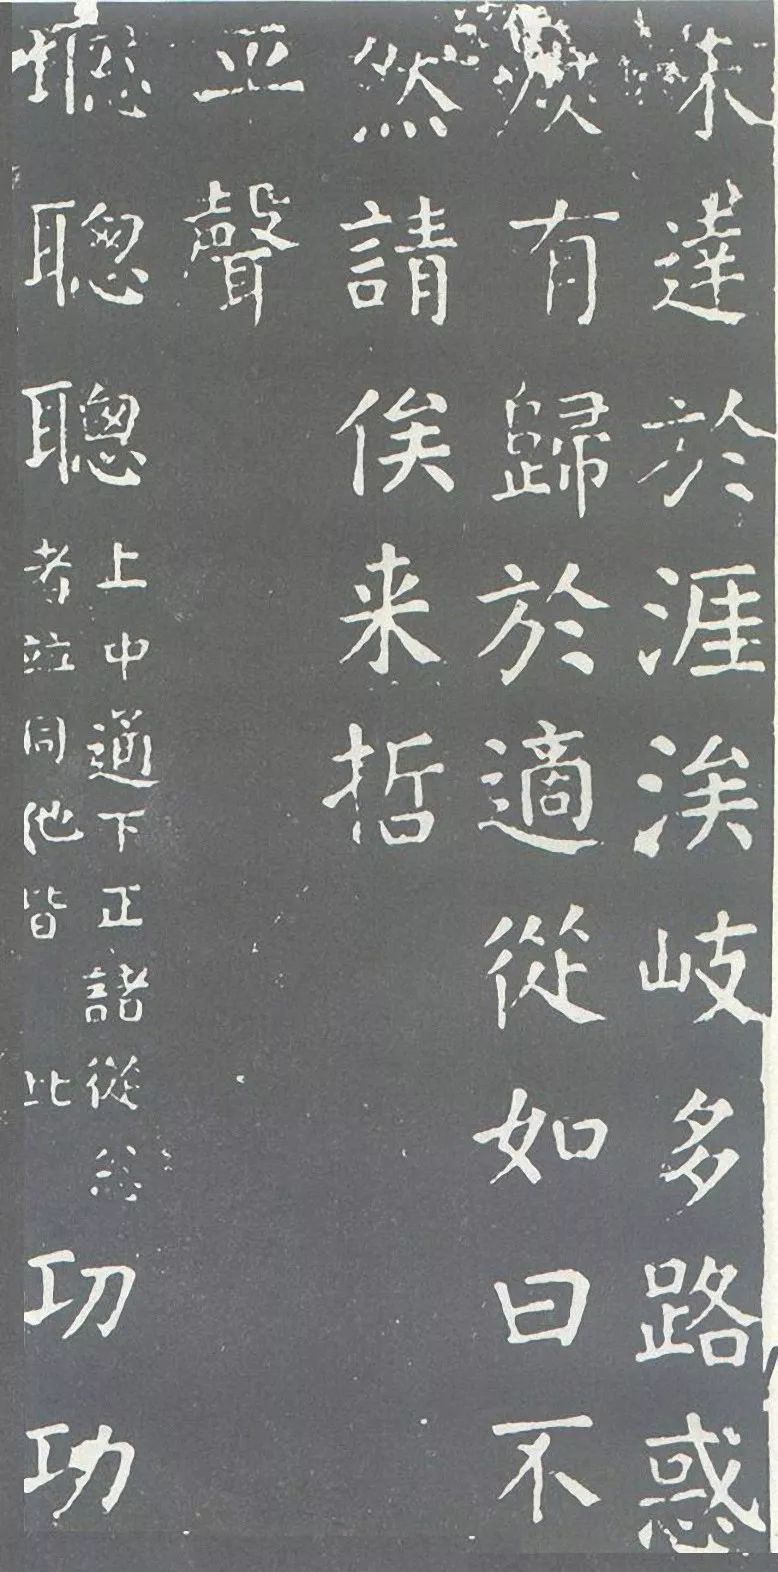 未達於涯涘岐多路惑
庶有歸於適從如曰不
然請俟来哲
平聲
聦聰
上中通下正諸從怱
者並同他皆此
㓛功